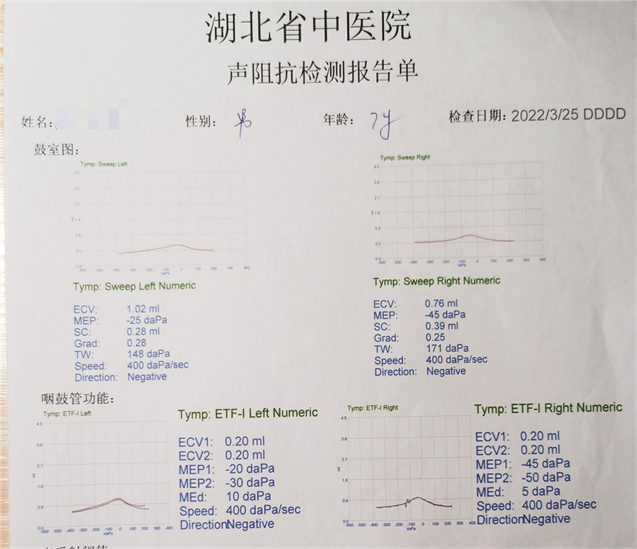 湖北省中医院
声阻抗检测报告单
姓名: 性别: 男 年龄: 7岁 检查日期: 2022/3/25 DDDD
鼓室图:
Tymp: Sweep Left
Tymp: Sweep Right
Tymp: Sweep Left Numeric
ECV: 1.02 ml
MEP: -25 daPa
SC: 0.28 ml
Grad: 0.28
TW: 148 daPa
Speed: 400 daPa/sec
Direction: Negative
Tymp: Sweep Right Numeric
ECV: 0.76 ml
MEP: -45 daPa
SC: 0.39 ml
Grad: 0.25
TW: 171 daPa
Speed: 400 daPa/sec
Direction: Negative
咽鼓管功能:
Tymp: ETF-I Left
Tymp: ETF-I Left Numeric
ECV1: 0.20 ml
ECV2: 0.20 ml
MEP1: -20 daPa
MEP2: -30 daPa
MEd: 10 daPa
Speed: 400 daPa/sec
Direction Negative
Tymp: ETF-I Right
Tymp: ETF-I Right Numeric
ECV1: 0.20 ml
ECV2: 0.20 ml
MEP1: -45 daPa
MEP2: -50 daPa
MEd: 5 daPa
Speed: 400 daPa/sec
Direction Negative